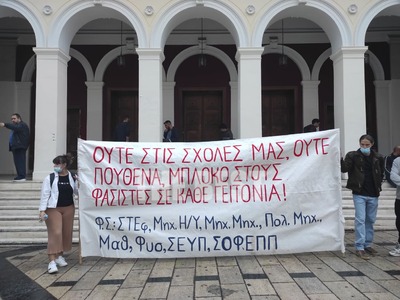 ΟΥΤΕ ΣΤΙΣ ΣΧΟΛΕΣ ΜΑΣ, ΟΥΤΕ
ΠΟΥΘΕΝΑ, ΜΠΛΟΚΟ ΣΤΟΥΣ
ΦΑΣΙΣΤΕΣ ΣΕ ΚΑΘΕ ΓΕΙΤΟΝΙΑ!
Φ.Σ.: ΣΤΕφ, Μηχ. Η/Υ, Μηχ. Μηχ., Πολ. Μηχ.,
Μαθ, Φυσ, ΣΕΥΠ, ΣΟΦΕΠΠ